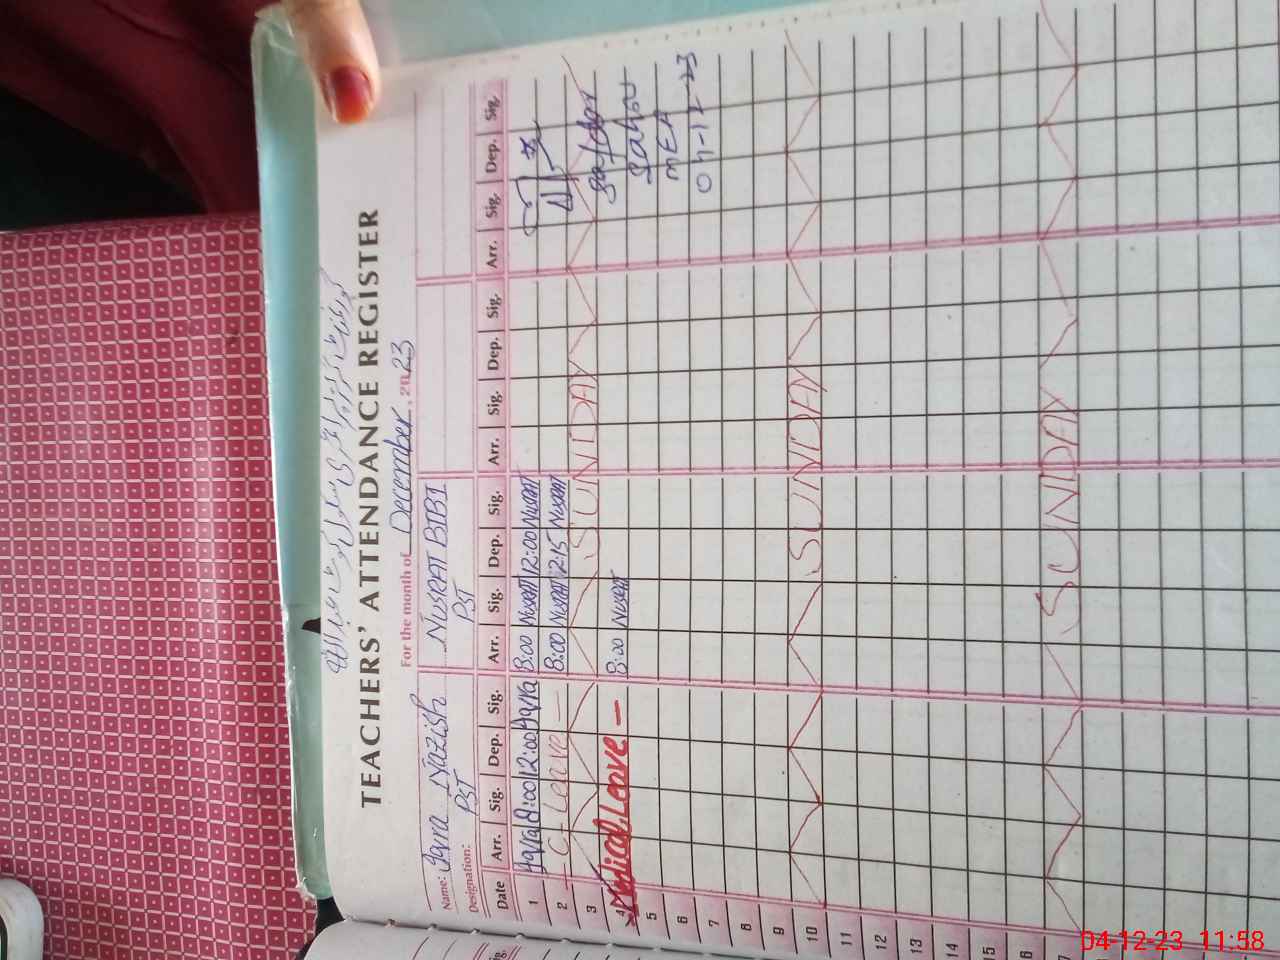 TEACHERS' ATTENDANCE REGISTER
For the month of December, 2023
Name: Nazish NUSRAT BIBI
Designation: PST PST
Date Arr. Sig. Dep. Sig. Arr. Sig. Dep. Sig. Arr. Sig. Dep. Sig. Arr. Sig. Dep. Sig.
1 8:00 12:00 8:00 Nusrat 12:00 Nusrat
2 - C-Leave - 8:00 Nusrat 12:15 Nusrat
3 SUNDAY
4 Medical Leave - 8:00 Nusrat
5 MEA
6 04-12-23
7
8
9
10 SUNDAY
11
12
13
14
15
16
17 SUNDAY
04-12-23 11:58